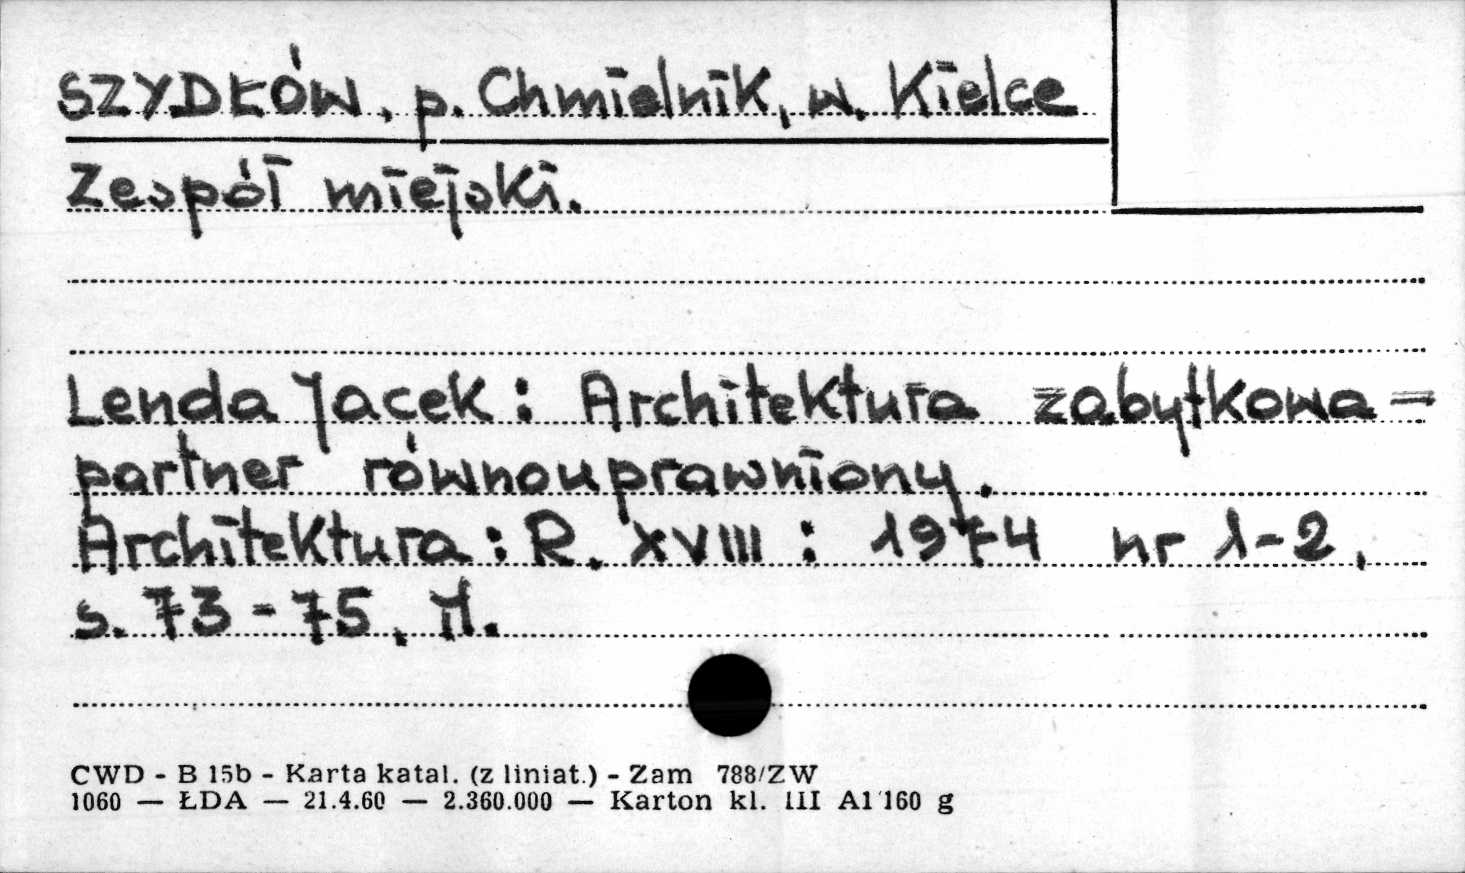 SZYDŁÓW, p. Chmielnik, w. Kielce
Zespół miejski.
Lenda Jacek: Architektura zabytkowa -
partner równouprawniony.
Architektura: R. XVIII: 1974 nr 1-2,
s. 73-75, il.
CWD - B 15b - Karta katal. (z liniat.) - Zam 788/ZW
1060 — ŁDA — 21.4.60 — 2.360.000 — Karton kl. III A1 160 g